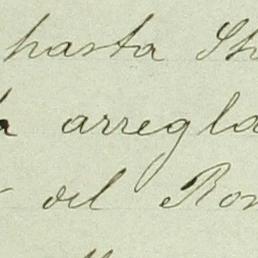 hasta
arregla
del Ron